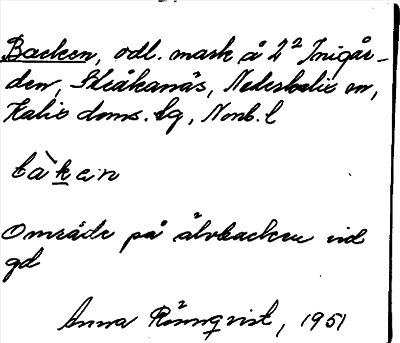 Backen, odl. mark å 2² Inigår-
den, Stråkanäs, Nederkalix sn,
Kalix doms. lg, Norrb. l
bàk̲en
Område på älvbacken vid
gd
Anna Rönnqvist, 1951